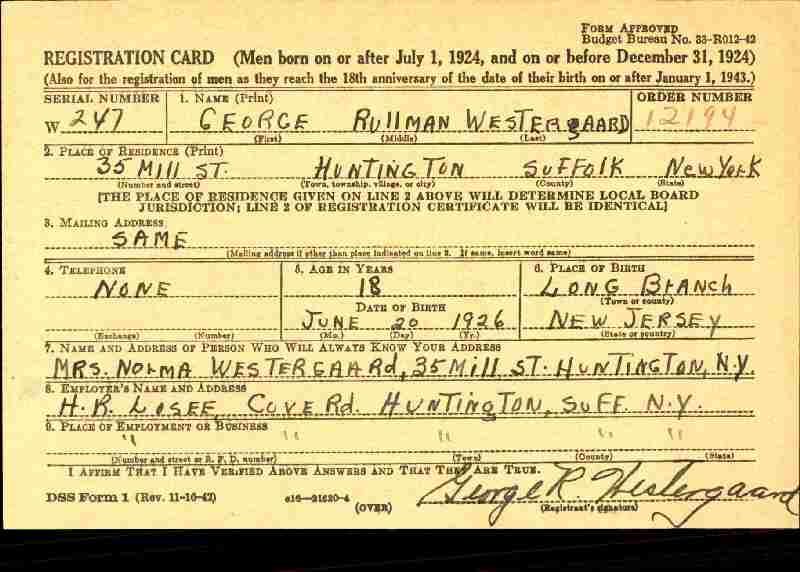 FORM APPROVED
Budget Bureau No. 33-R012-42
REGISTRATION CARD (Men born on or after July 1, 1924, and on or before December 31, 1924)
(Also for the registration of men as they reach the 18th anniversary of the date of their birth on or after January 1, 1943.)
SERIAL NUMBER 1. NAME (Print) ORDER NUMBER
W 247 GEORGE RULLMAN WESTERGAARD 12194
(First) (Middle) (Last)
2. PLACE OF RESIDENCE (Print)
35 MILL ST. HUNTINGTON SUFFOLK NEW YORK
(Number and street) (Town, township, village, or city) (County) (State)
[THE PLACE OF RESIDENCE GIVEN ON LINE 2 ABOVE WILL DETERMINE LOCAL BOARD
JURISDICTION; LINE 2 OF REGISTRATION CERTIFICATE WILL BE IDENTICAL]
3. MAILING ADDRESS
SAME
(Mailing address if other than place indicated on line 2. If same, insert word same)
4. TELEPHONE 5. AGE IN YEARS 6. PLACE OF BIRTH
NONE 18 LONG BRANCH
DATE OF BIRTH (Town or county)
JUNE 20 1926 NEW JERSEY
(Exchange) (Number) (Mo.) (Day) (Yr.) (State or country)
7. NAME AND ADDRESS OF PERSON WHO WILL ALWAYS KNOW YOUR ADDRESS
MRS. NORMA WESTERGAARD, 35 MILL ST. HUNTINGTON, N.Y.
8. EMPLOYER'S NAME AND ADDRESS
H. R. LOSEE, COVE Rd. HUNTINGTON, SUFF. N.Y.
9. PLACE OF EMPLOYMENT OR BUSINESS
" " " " "
(Number and street or R. F. D. number) (Town) (County) (State)
I AFFIRM THAT I HAVE VERIFIED ABOVE ANSWERS AND THAT THEY ARE TRUE.
George R. Westergaard
DSS Form 1 (Rev. 11-16-42) c16—21630-4 (OVER) (Registrant's signature)